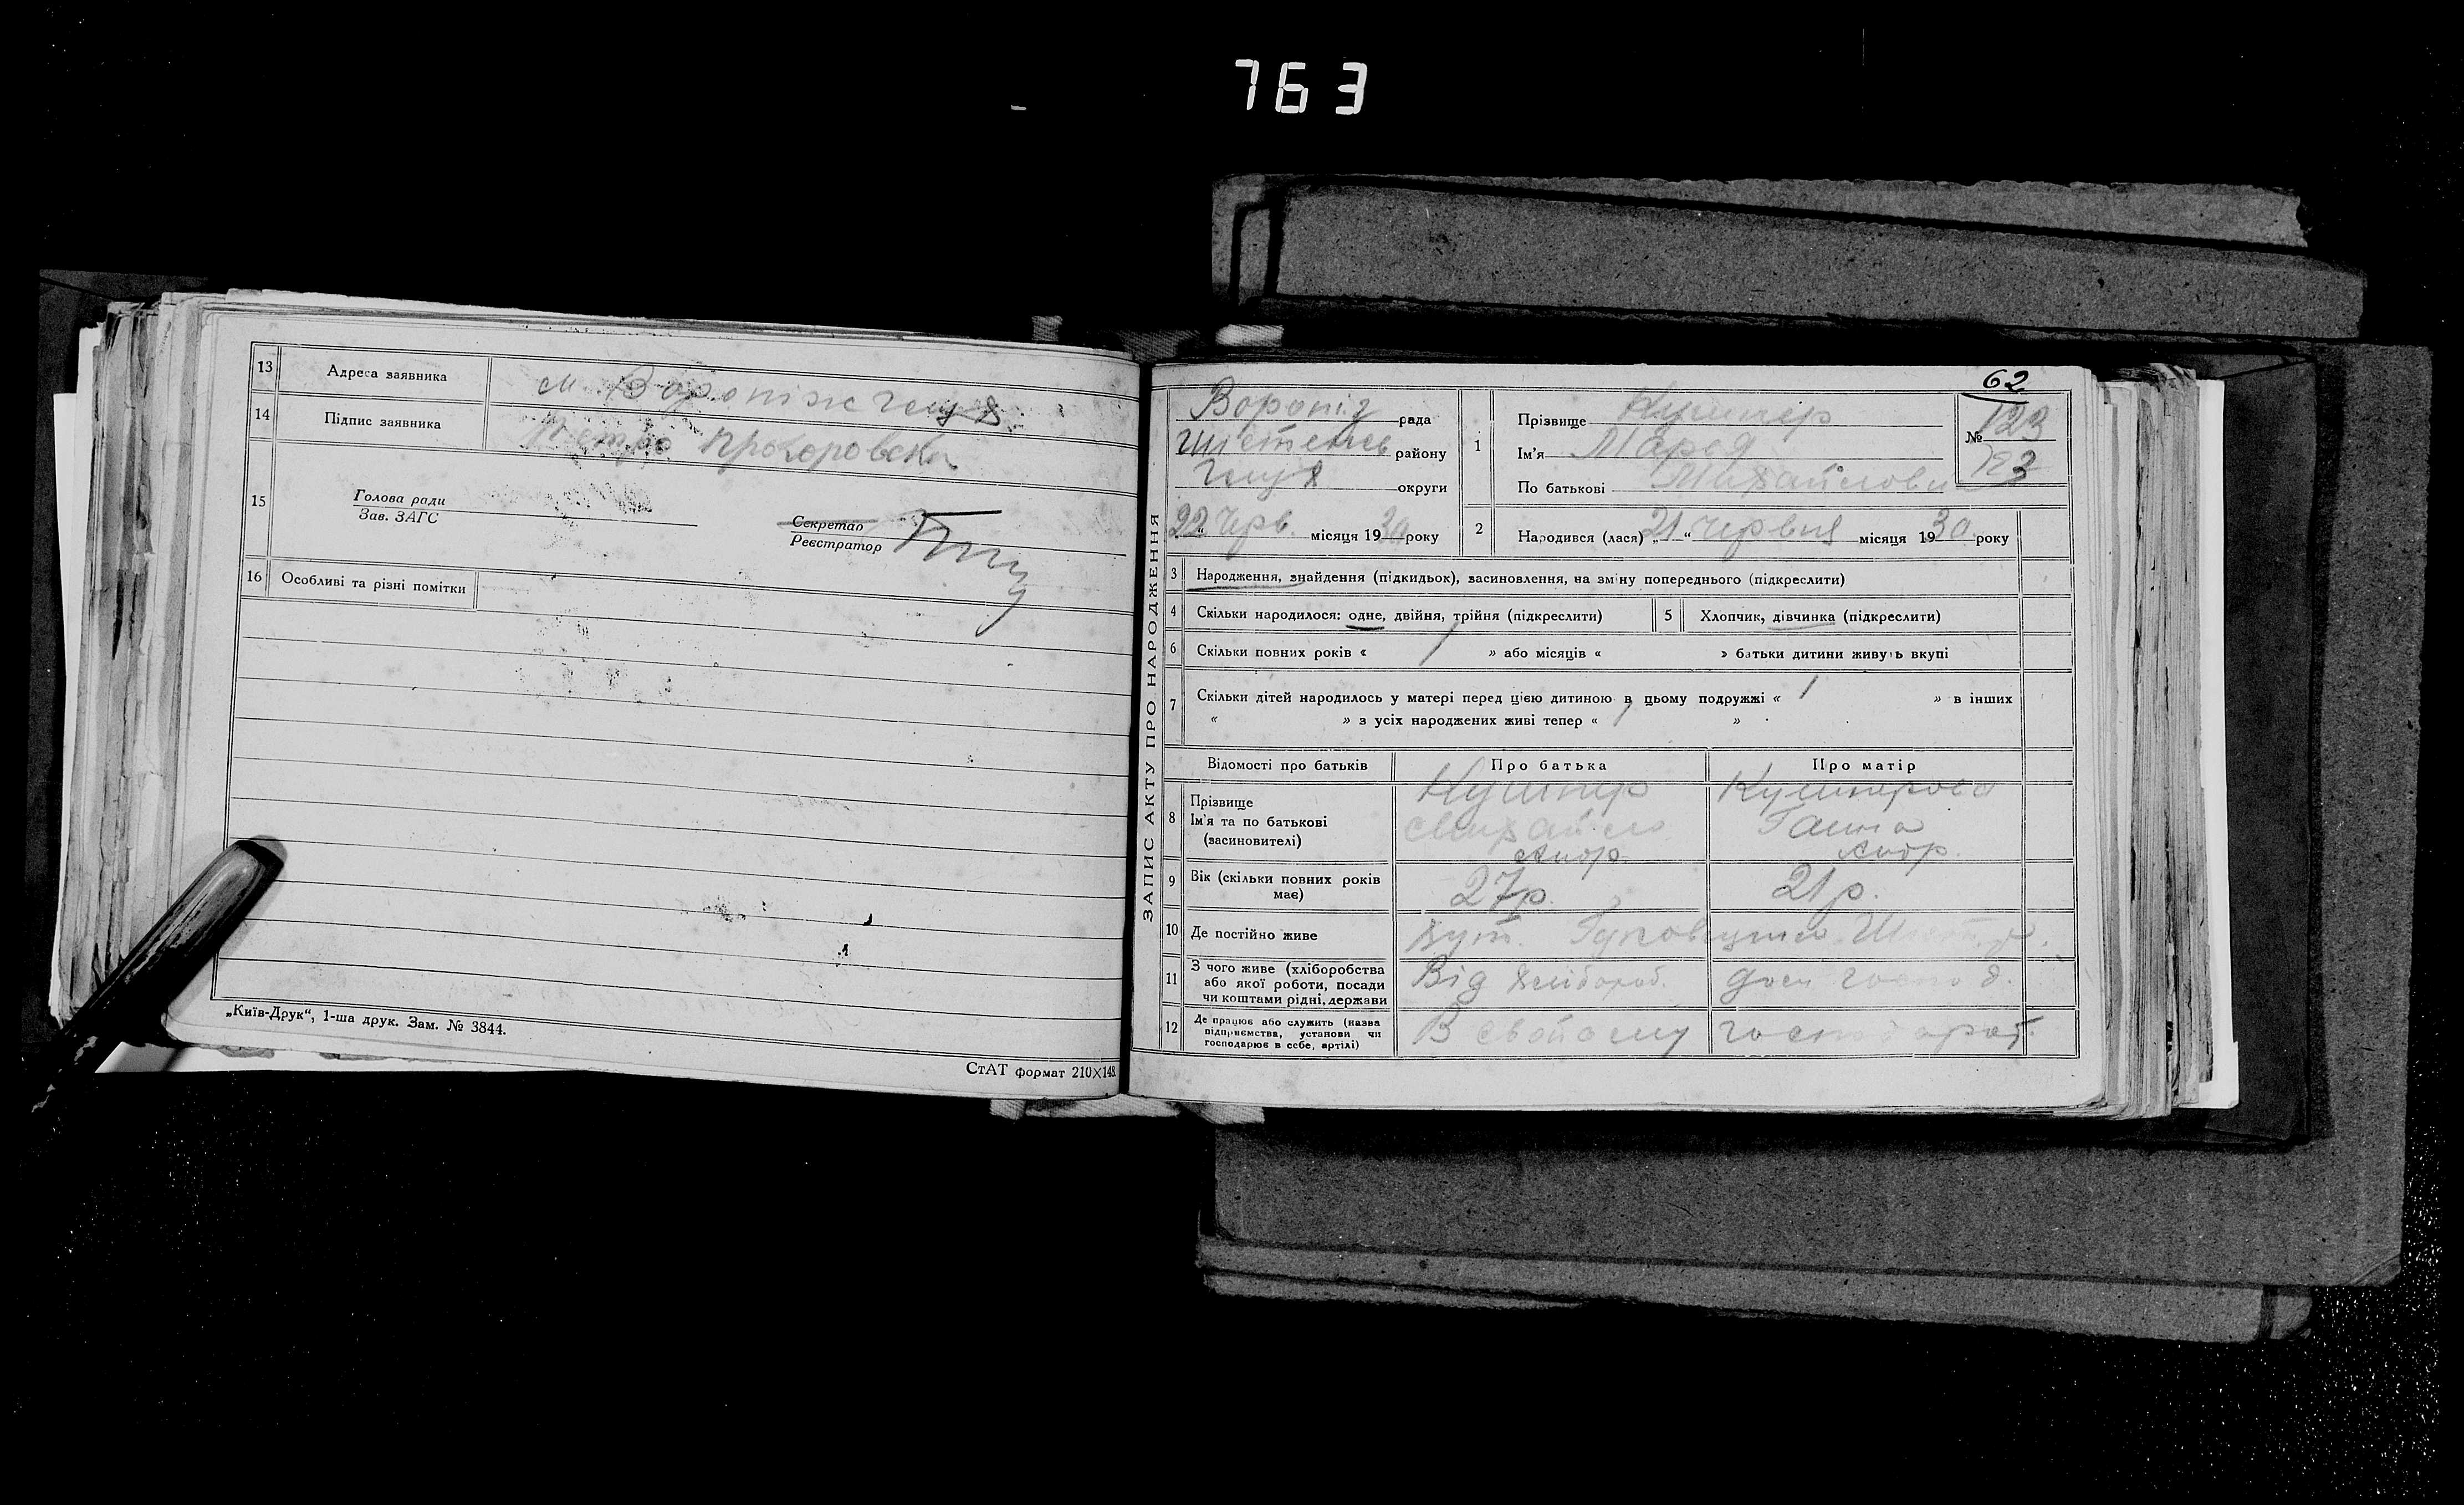 763
13 Адреса заявника м. Вороніж
14 Підпис заявника Петро Прохоровськ
15
Голова ради
Зав. ЗАГС
Секретар
Реєстратор
16 Особливі та різні помітки
„Київ-Друк“, 1-ша друк. Зам. № 3844.
СтАТ формат 210×148.
62
ЗАПИС АКТУ ПРО НАРОДЖЕННЯ
Вороніз рада
району
округи
22 Черв. місяця 1930 року
1 Прізвище Кушнер
Ім'я Марія
По батькові Михайлови
№ 123
123
2 Народився (лася) „21“ червня місяця 1930 року
3 Народження, знайдення (підкидьок), засиновлення, на зміну попереднього (підкреслити)
4 Скільки народилося: одне, двійня, трійня (підкреслити)
5 Хлопчик, дівчинка (підкреслити)
6 Скільки повних років « » або місяців « » батьки дитини живуть вкупі
7 Скільки дітей народилось у матері перед цією дитиною в цьому подружжі « 1 » в інших
« » з усіх народжених живі тепер « »
Відомості про батьків Про батька Про матір
8 Прізвище
Ім'я та по батькові
(засиновителі)
Кушнер
Михайло
Андр.
Кушнерова
Ганна
Андр.
9 Вік (скільки повних років
має)
27р. 21р.
10 Де постійно живе Хут.
11 З чого живе (хліборобства
або якої роботи, посади
чи коштами рідні, держави
Від хлібороб. дом. господ.
12 Де працює або служить (назва
підприємства, установи чи
господарює в себе, артілі)
В свойому господарст.